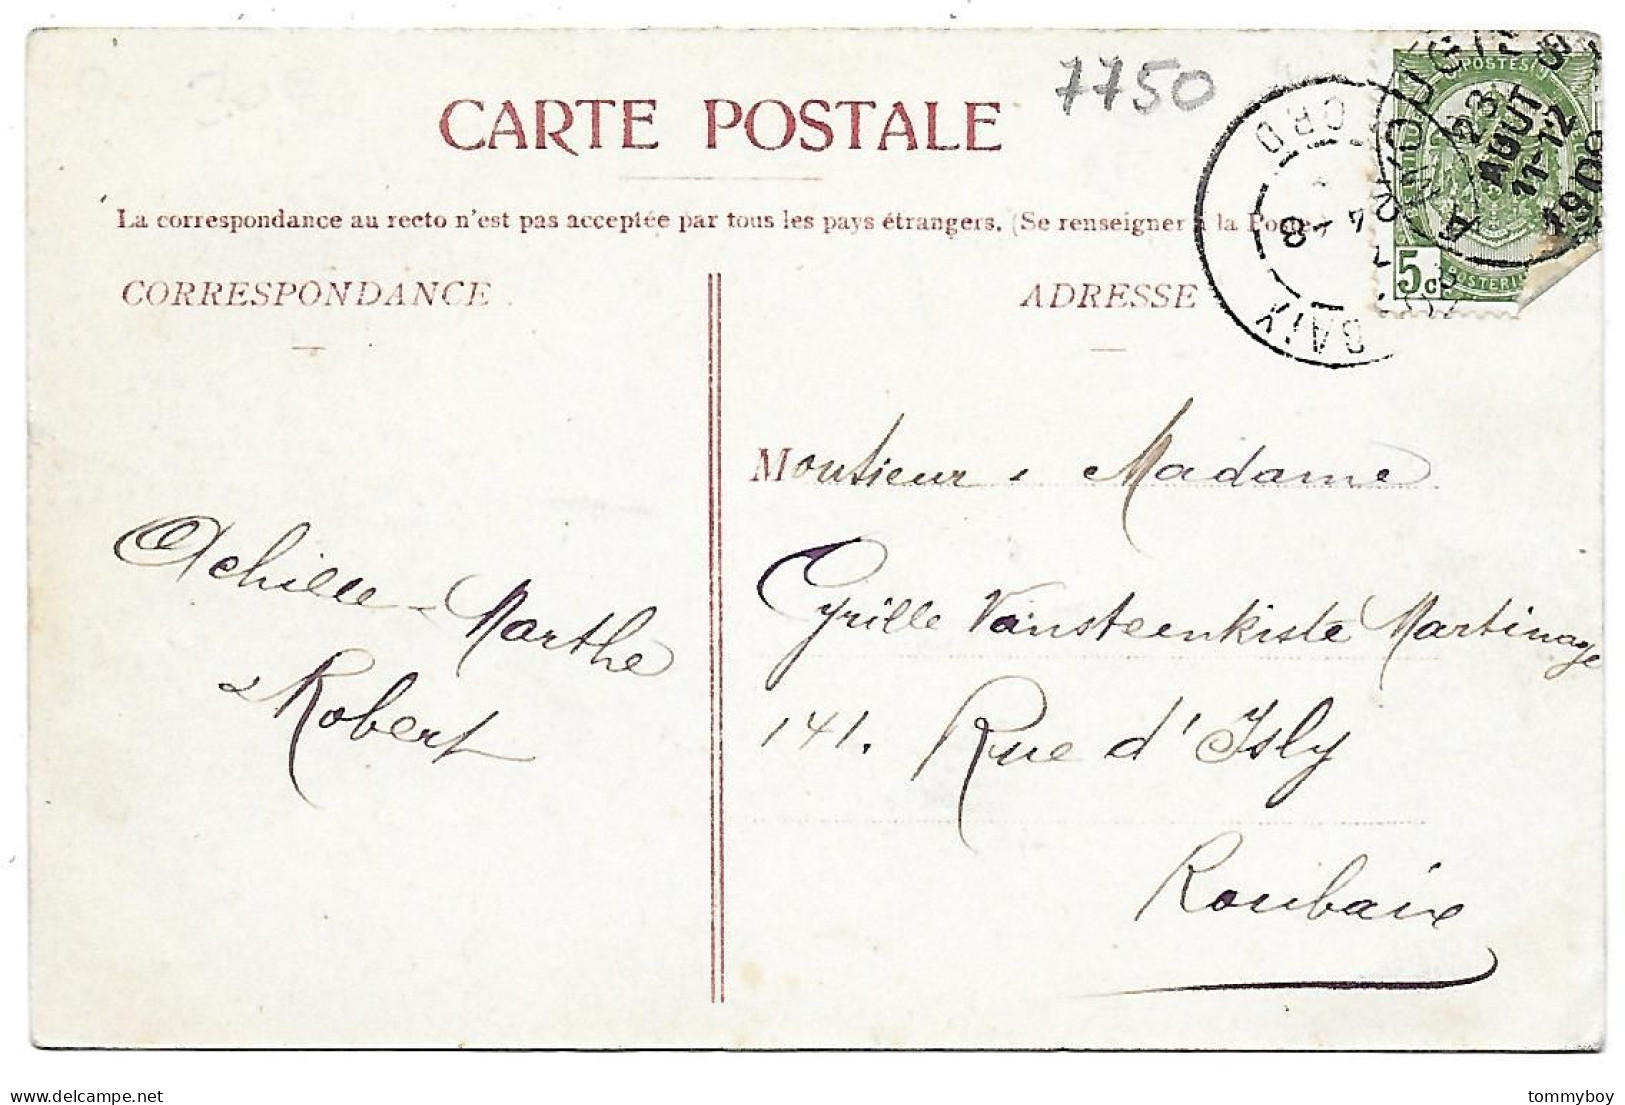 7750
CARTE POSTALE
La correspondance au recto n'est pas acceptée par tous les pays étrangers. (Se renseigner à la Poste.)
CORRESPONDANCE
ADRESSE
POSTES
5c
MOUSCRON
23
AOUT
11-12
1908
ROUBAIX
NORD
Monsieur & Madame
Cyrille Vansteenkiste Martinage
141. Rue d'Isly
Roubaix
Achille - Marthe
& Robert
delcampe.net
tommyboy